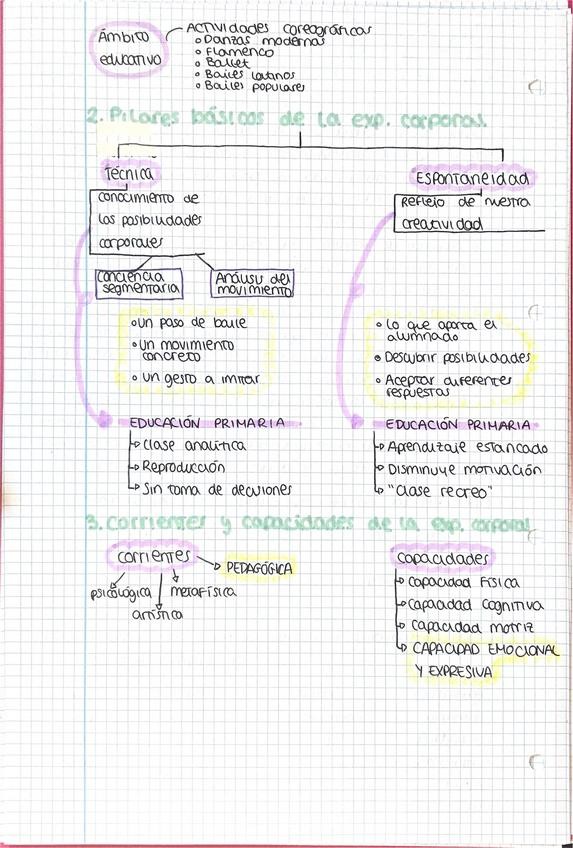 Ámbito
educativo
ACTIVIDADES coreográficas
Danzas modernas
Flamenco
Ballet
Bailes latinos
Bailes populares
2. Pilares básicos de la exp. corporal
Técnica
conocimiento de
las posibilidades
corporales
Conciencia
segmentaria
Análisis del
movimiento
Un paso de baile
Un movimiento
concreto
Un gesto a imitar
EDUCACIÓN PRIMARIA
Clase analítica
Reproducción
Sin toma de decisiones
Espontaneidad
Reflejo de nuestra
creatividad
Lo que aporta el
alumnado
Descubrir posibilidades
Aceptar diferentes
respuestas
EDUCACIÓN PRIMARIA
Aprendizaje estancado
Disminuye motivación
"Clase recreo"
3. Corrientes y capacidades de la exp. corporal
Corrientes
PEDAGÓGICA
psicológica
metafísica
artística
Capacidades
Capacidad Física
Capacidad cognitiva
Capacidad motriz
CAPACIDAD EMOCIONAL
Y EXPRESIVA